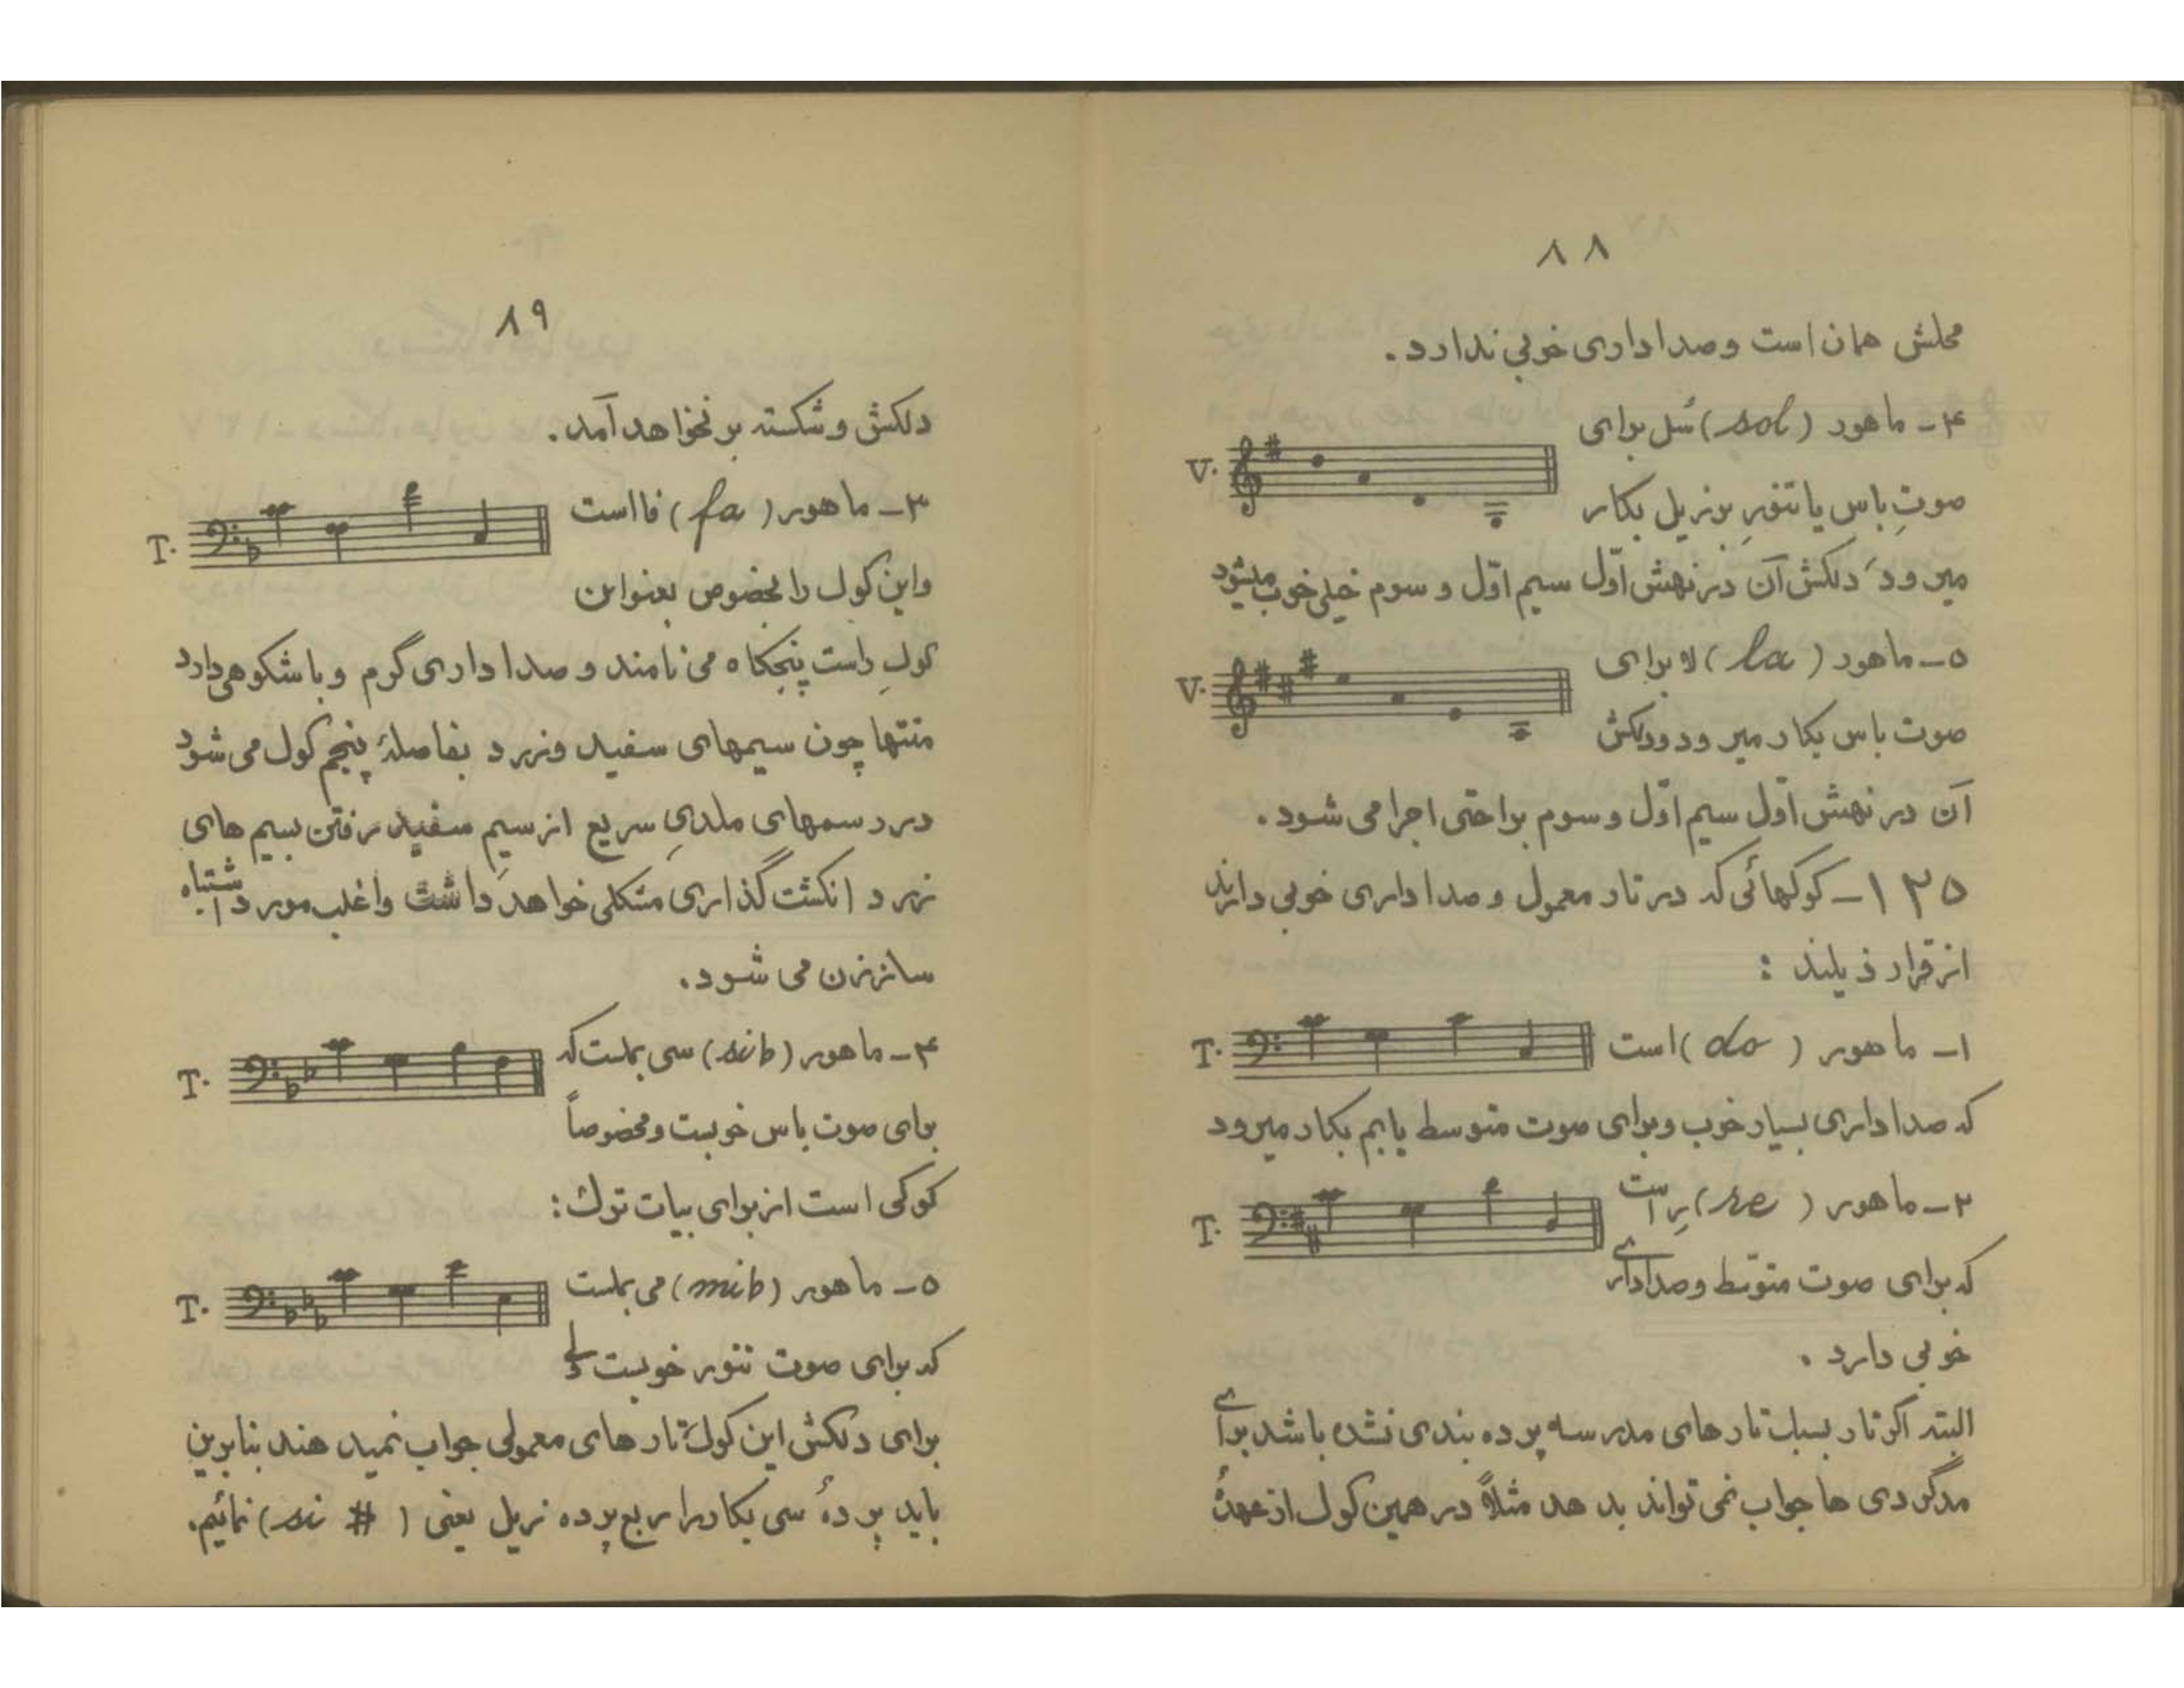 ۸۸
محلش همان است و صدا داری خوبی ندارد.
۴- ماهور (sol) سُل برای
V.
صوتِ باس یا تنورِ بزیل بکار
میرود، دلکش آن در نهشِ اوّل سیم اوّل و سوم خیلی خوب میشود
۵- ماهور (la) لا برای
V.
صوت باس بکار میرود و دلکش
آن در نهشِ اوّل سیم اوّل و سوم براحتی اجرا می شود.
۱۳۵- کوکهائی که در تار معمول و صدا داری خوبی دارند
از قرار ذیلند :
۱- ماهور (do) است
T.
که صدا داری بسیار خوب و برای صوت متوسط یا بم بکار میرود
۲- ماهور (re) رِ است
T.
که برای صوت متوسّط و صدا داری
خوبی دارد .
البته اگر تار بسبک تارهای مدرسه پرده بندی نشده باشد برای
مدگردی ها جواب نمی تواند بدهد مثلاً در همین کوک از عهدهٔ
۸۹
دلکش و شکسته بر نخواهد آمد.
۳- ماهور (fa) فا است
T.
و این کوک را بخصوص بعنوان
کوکِ راست پنجگاه می نامند و صدا داری گرم و با شکوهی دارد
منتها چون سیمهای سفید و زرد بفاصلهٔ پنجم کوک می شود
در رسمهای ملدیِ سریع از سیمِ سفید رفتن بسیم های
زرد انگشت گذاری مشکلی خواهد داشت و اغلب مورد اشتباه
ساززن می شود.
۴- ماهور (sib) سی بملست که
T.
برای صوت باس خوبست و مخصوصاً
کوکی است از برای بیات ترک :
۵- ماهور (mib) می بملست
T.
که برای صوت تنور خوبست ولی
برای دلکش این کوک تارهای معمولی جواب نمیدهند بنابرین
باید پردهٔ سی بکار را ربع پرده زیل یعنی (si #) نمائیم.